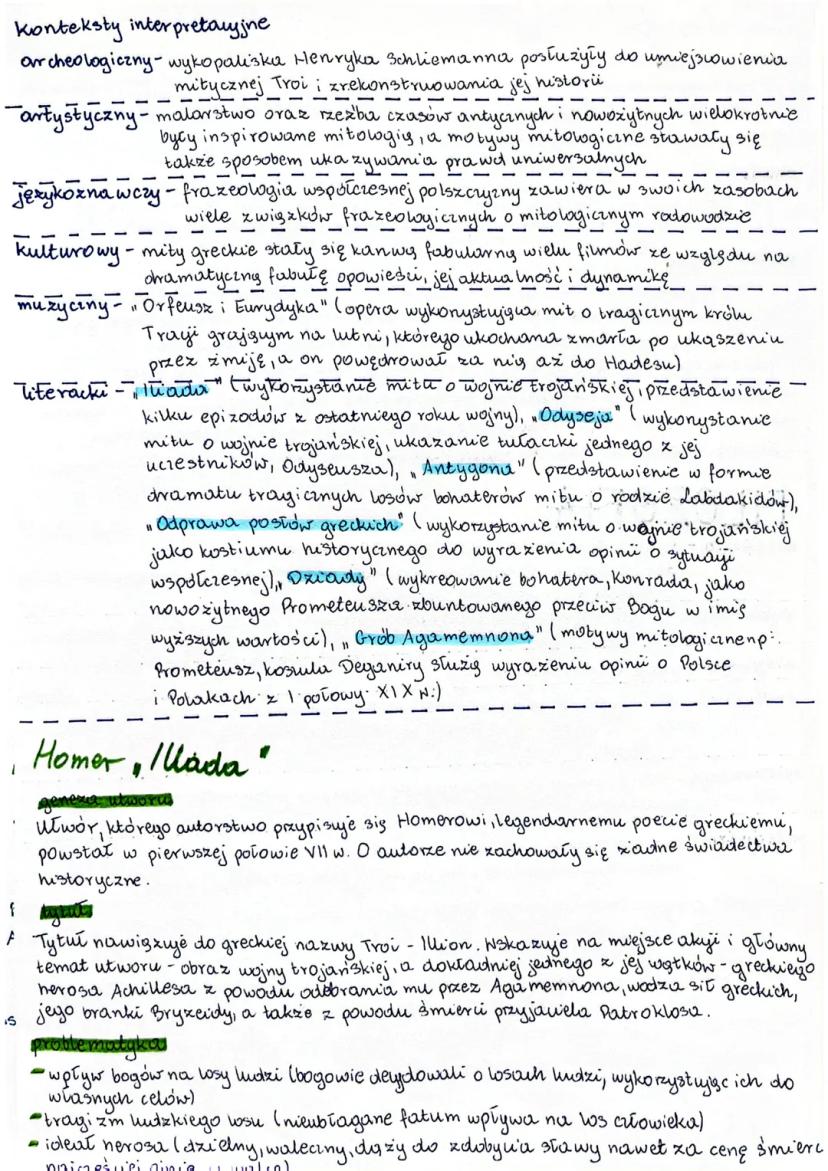 konteksty interpretacyjne
archeologiczny - wykopaliska Henryka Schliemanna posłużyły do umiejscowienia
mitycznej Troi i zrekonstruowania jej historii
artystyczny - malarstwo oraz rzeźba czasów antycznych i nowożytnych wielokrotnie
były inspirowane mitologią, a motywy mitologiczne stawały się
także sposobem ukazywania prawd uniwersalnych
językoznawczy - frazeologia współczesnej polszczyzny zawiera w swoich zasobach
wiele związków frazeologicznych o mitologicznym rodowodzie
kulturowy - mity greckie stały się kanwą fabularną wielu filmów ze względu na
dramatyczną fabułę opowieści, jej aktualność i dynamikę
muzyczny - "Orfeusz i Eurydyka" (opera wykorzystująca mit o tragicznym królu
Tracji grającym na lutni, którego ukochana zmarła po ukąszeniu
przez żmiję, a on powędrował za nią aż do Hadesu)
literacki - "Iliada" (wykorzystanie mitu o wojnie trojańskiej, przedstawienie
kilku epizodów z ostatniego roku wojny), "Odyseja" (wykorzystanie
mitu o wojnie trojańskiej, ukazanie tułaczki jednego z jej
uczestników, Odyseusza), "Antygona" (przedstawienie w formie
dramatu tragicznych losów bohaterów mitu o rodzie Labdakidów),
"Odprawa posłów greckich" (wykorzystanie mitu o wojnie trojańskiej
jako kostiumu historycznego do wyrażenia opinii o sytuacji
współczesnej), "Dziady" (wykreowanie bohatera, Konrada, jako
nowożytnego Prometeusza zbuntowanego przeciw Bogu w imię
wyższych wartości), "Grób Agamemnona" (motywy mitologiczne np.
Prometeusz, koszula Dejaniry służą wyrażeniu opinii o Polsce
i Polakach z I połowy XIX w.)
Homer "Iliada"
geneza utworu
Utwór, którego autorstwo przypisuje się Homerowi, legendarnemu poecie greckiemu,
powstał w pierwszej połowie VII w. O autorze nie zachowały się żadne świadectwa
historyczne.
tytuł
Tytuł nawiązuje do greckiej nazwy Troi - Ilion. Wskazuje na miejsce akcji i główny
temat utworu - obraz wojny trojańskiej, a dokładniej jednego z jej wątków - greckiego
herosa Achillesa z powodu odebrania mu przez Agamemnona, wodza sił greckich,
jego branki Bryzeidy, a także z powodu śmierci przyjaciela Patroklosa.
problematyka
- wpływ bogów na losy ludzi (bogowie decydowali o losach ludzi, wykorzystując ich do
własnych celów)
- tragizm ludzkiego losu (nieubłagane fatum wpływa na los człowieka)
- ideał herosa (dzielny, waleczny, dąży do zdobycia sławy nawet za cenę śmierc
najczęściej ginie w walce)